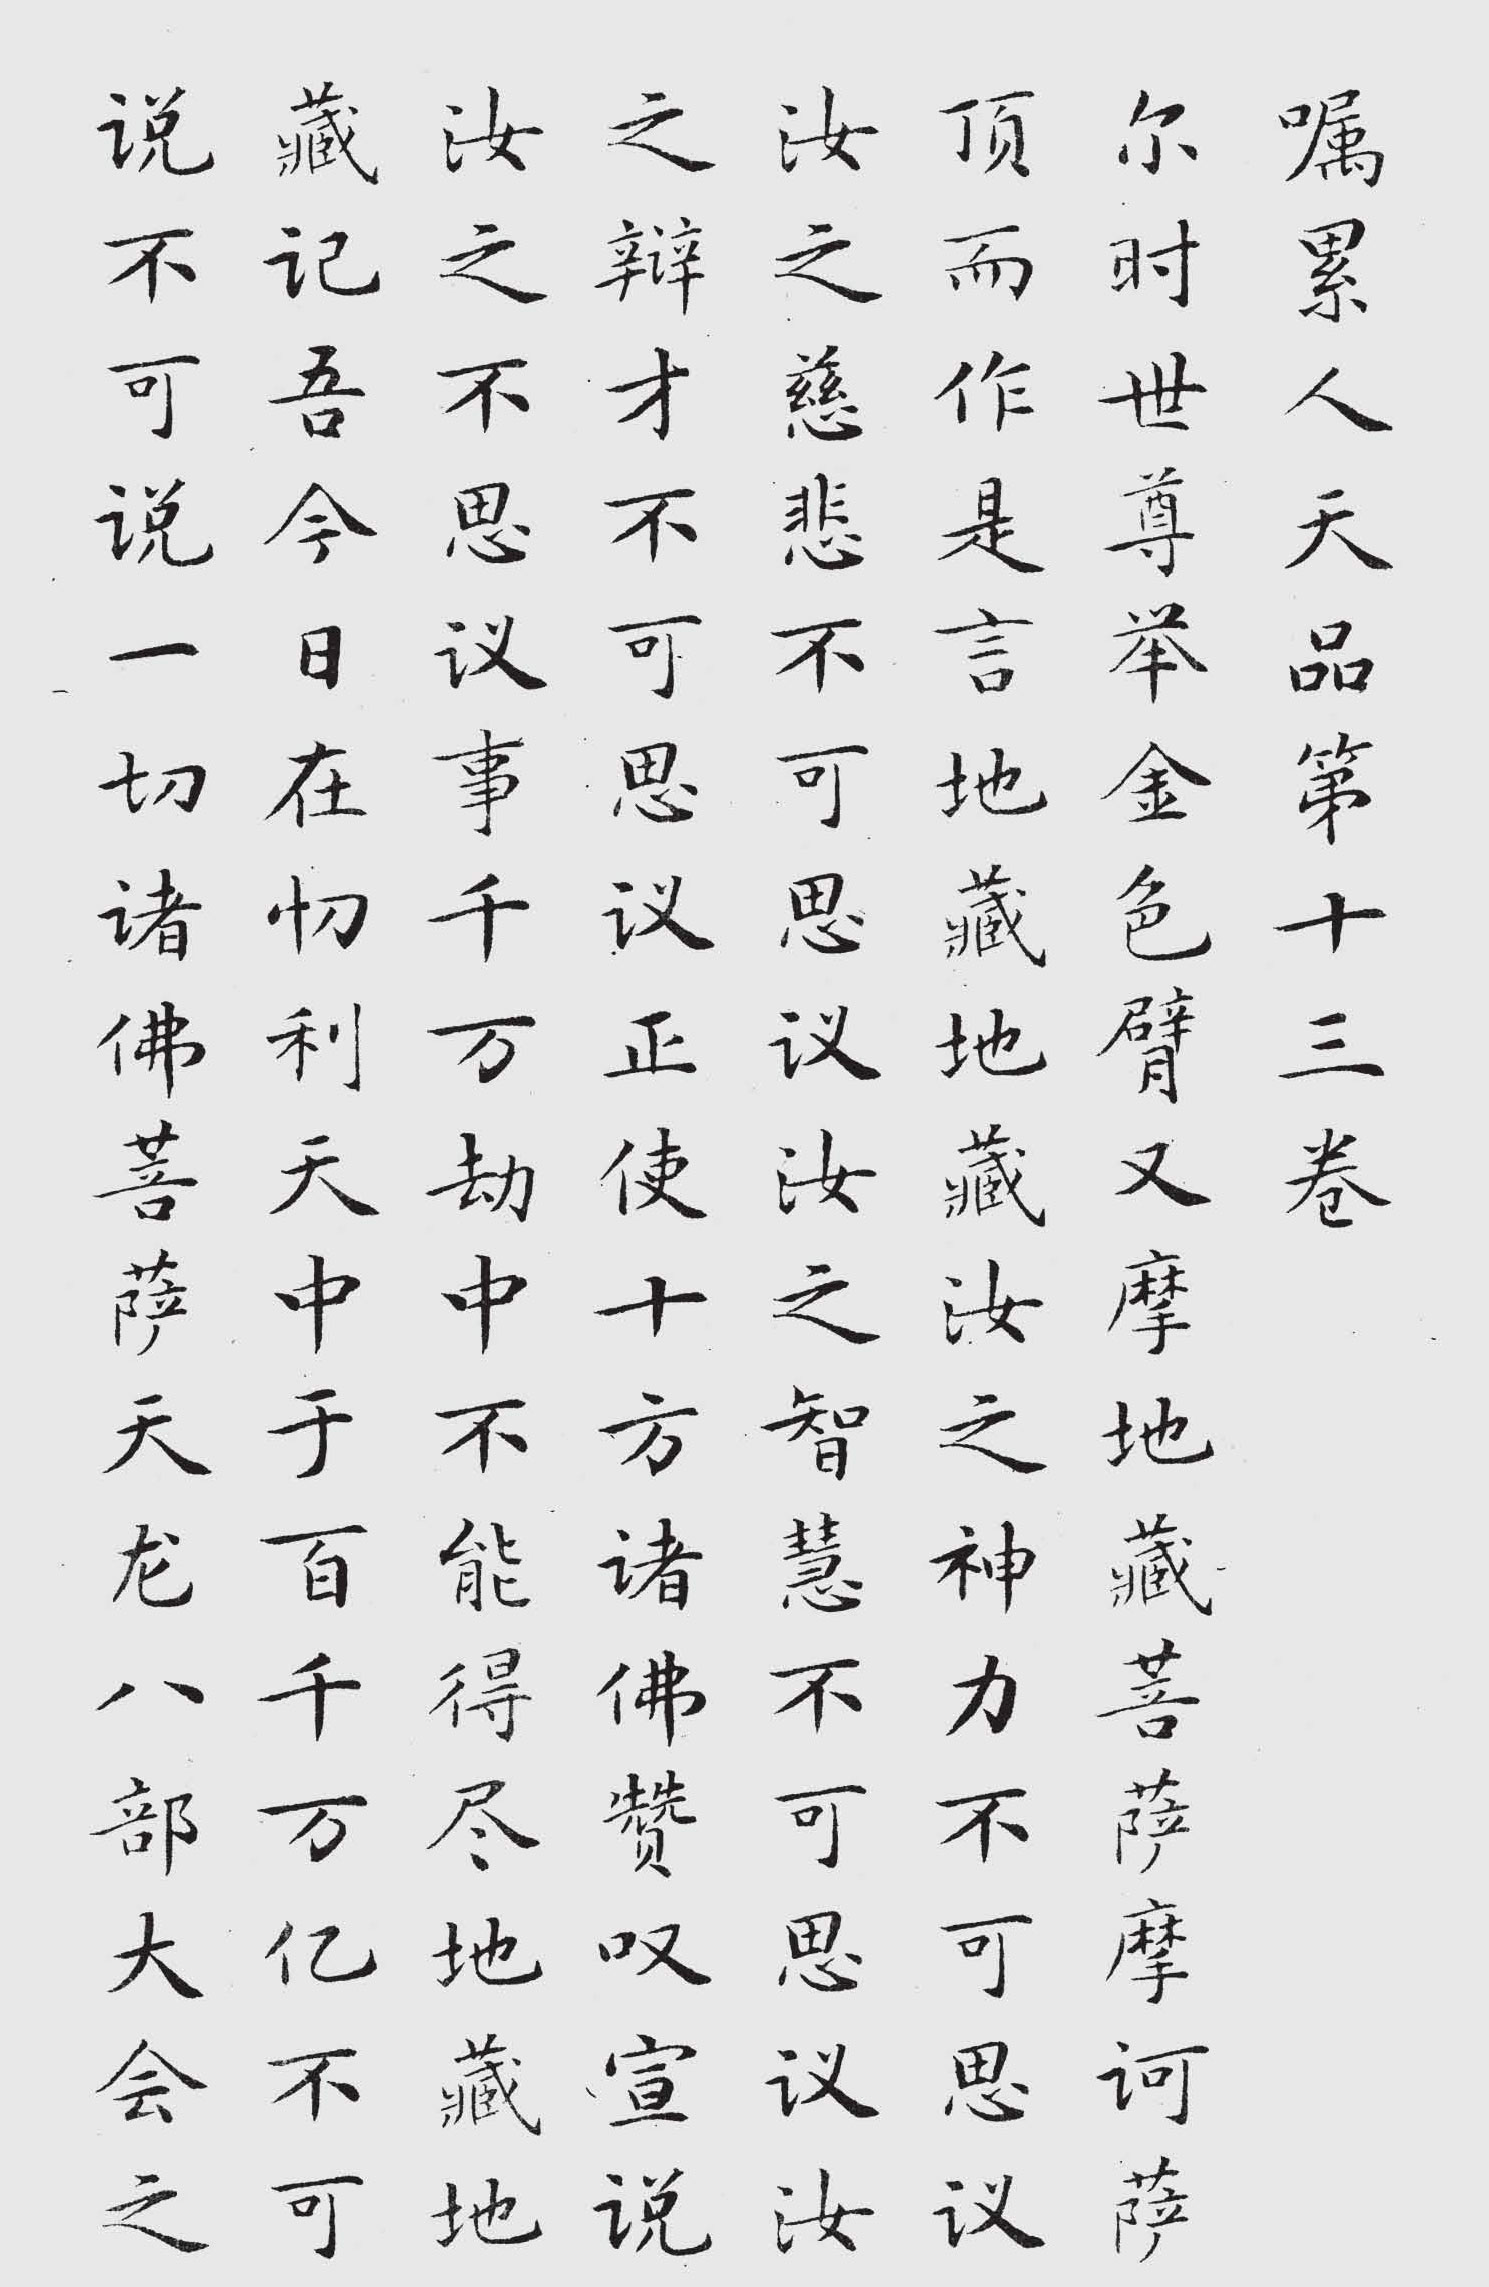 嘱累人天品第十三卷
尔时世尊举金色臂又摩地藏菩萨摩诃萨
顶而作是言地藏地藏汝之神力不可思议
汝之慈悲不可思议汝之智慧不可思议汝
之辩才不可思议正使十方诸佛赞叹宣说
汝之不思议事千万劫中不能得尽地藏地
藏记吾今日在忉利天中于百千万亿不可
说不可说一切诸佛菩萨天龙八部大会之